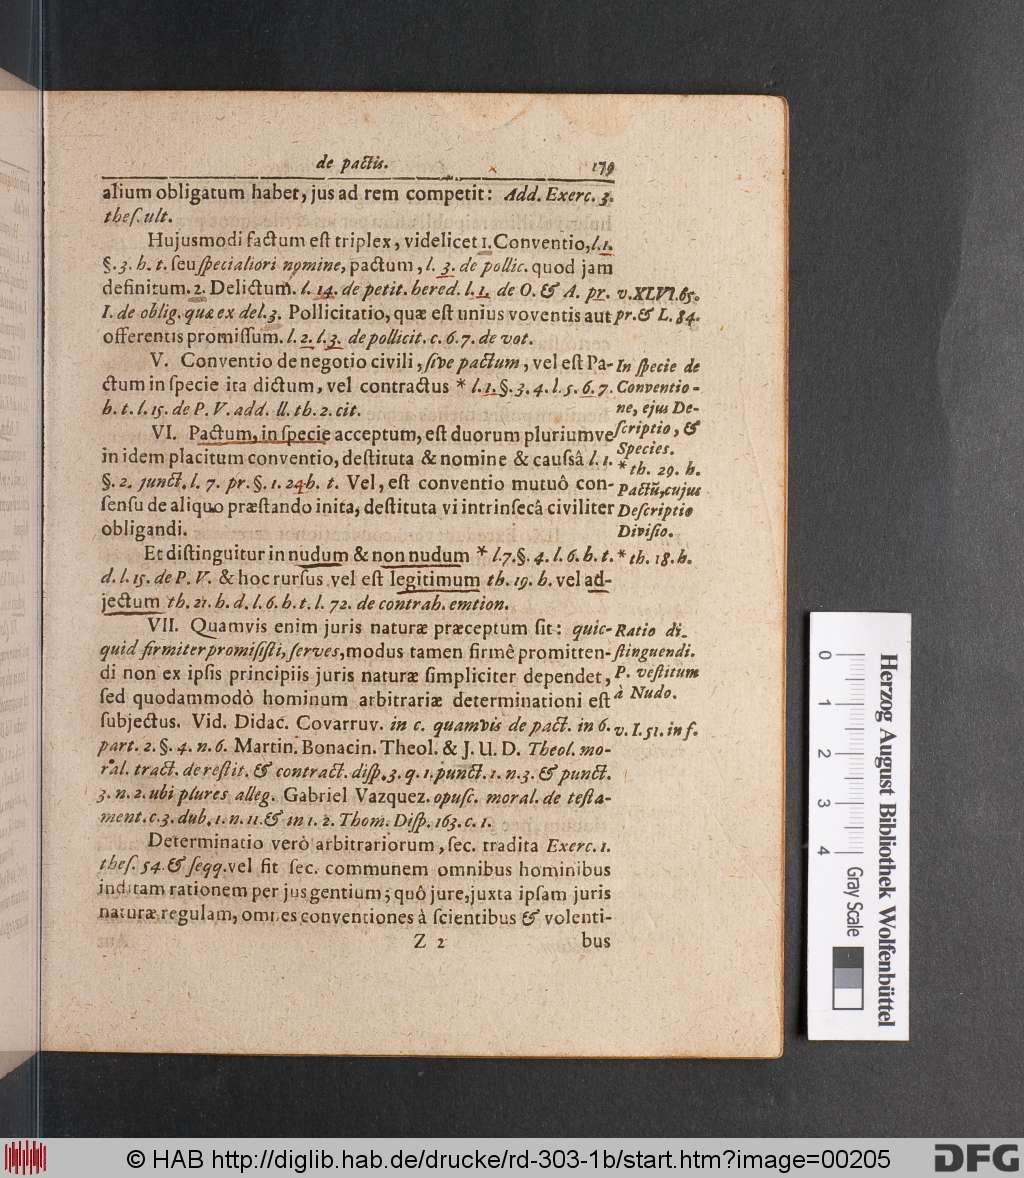 de pactis.
179
alium obligatum habet, jus ad rem competit: Add. Exerc. 3.
theſ. ult.
Hujusmodi factum eſt triplex, videlicet 1. Conventio, l. 1.
§. 3. h. t. ſeu ſpecialiori nomine, pactum, l. 3. de pollic. quod jam
definitum. 2. Delictum. l. 14. de petit. hered. l. 1. de O. & A. pr.
v. XLVI. 65.
I. de oblig. quæ ex del. 3. Pollicitatio, quæ eſt unius voventis aut
pr. & L. 84.
offerentis promiſſum. l. 2. l. 3. de pollicit. c. 6. 7. de vot.
V. Conventio de negotio civili, ſive pactum, vel eſt Pa-
In ſpecie de
ctum in ſpecie ita dictum, vel contractus * l. 1. §. 3. 4. l. 5. 6. 7.
Conventio-
h. t. l. 15. de P. V. add. ll. th. 2. cit.
ne, ejus De-
VI. Pactum, in ſpecie acceptum, eſt duorum pluriumve
ſcriptio, &
Species.
in idem placitum conventio, deſtituta & nomine & cauſsâ l. 1.
* th. 29. h.
§. 2. junct. l. 7. pr. §. 1. 24 h. t. Vel, eſt conventio mutuô con-
Pactū, cujus
ſenſu de aliquo præſtando inita, deſtituta vi intrinſecâ civiliter
Deſcriptio
obligandi.
Diviſio.
Et diſtinguitur in nudum & non nudum * l. 7. §. 4. l. 6. h. t.
* th. 18. h.
d. l. 15. de P. V. & hoc rurſus vel eſt legitimum th. 19. h. vel ad-
jectum th. 21. h. d. l. 6. h. t. l. 72. de contrah. emtion.
VII. Quamvis enim juris naturæ præceptum ſit: quic-
Ratio di-
quid firmiter promiſiſti, ſerves, modus tamen firmè promitten-
ſtinguendi.
di non ex ipſis principiis juris naturæ ſimpliciter dependet,
P. veſtitum
ſed quodammodò hominum arbitrariæ determinationi eſt
à Nudo.
ſubjectus. Vid. Didac. Covarruv. in c. quamvis de pact. in 6.
v. I. 51. in f.
part. 2. §. 4. n. 6. Martin. Bonacin. Theol. & J. U. D. Theol. mo-
ral. tract. de reſtit. & contract. diſp. 3. q. 1. punct. 1. n. 3. & punct.
3. n. 2. ubi plures alleg. Gabriel Vazquez. opuſc. moral. de teſta-
ment. c. 3. dub. 1. n. 11. & in 1. 2. Thom. Diſp. 163. c. 1.
Determinatio verò arbitrariorum, ſec. tradita Exerc. 1.
theſ. 54. & ſeqq. vel fit ſec. communem omnibus hominibus
inditam rationem per jus gentium; quô jure, juxta ipſam juris
naturæ regulam, omnes conventiones à ſcientibus & volenti-
Z 2
bus
0 1 2 3 4
Gray Scale
Herzog August Bibliothek Wolfenbüttel
© HAB http://diglib.hab.de/drucke/rd-303-1b/start.htm?image=00205
DFG